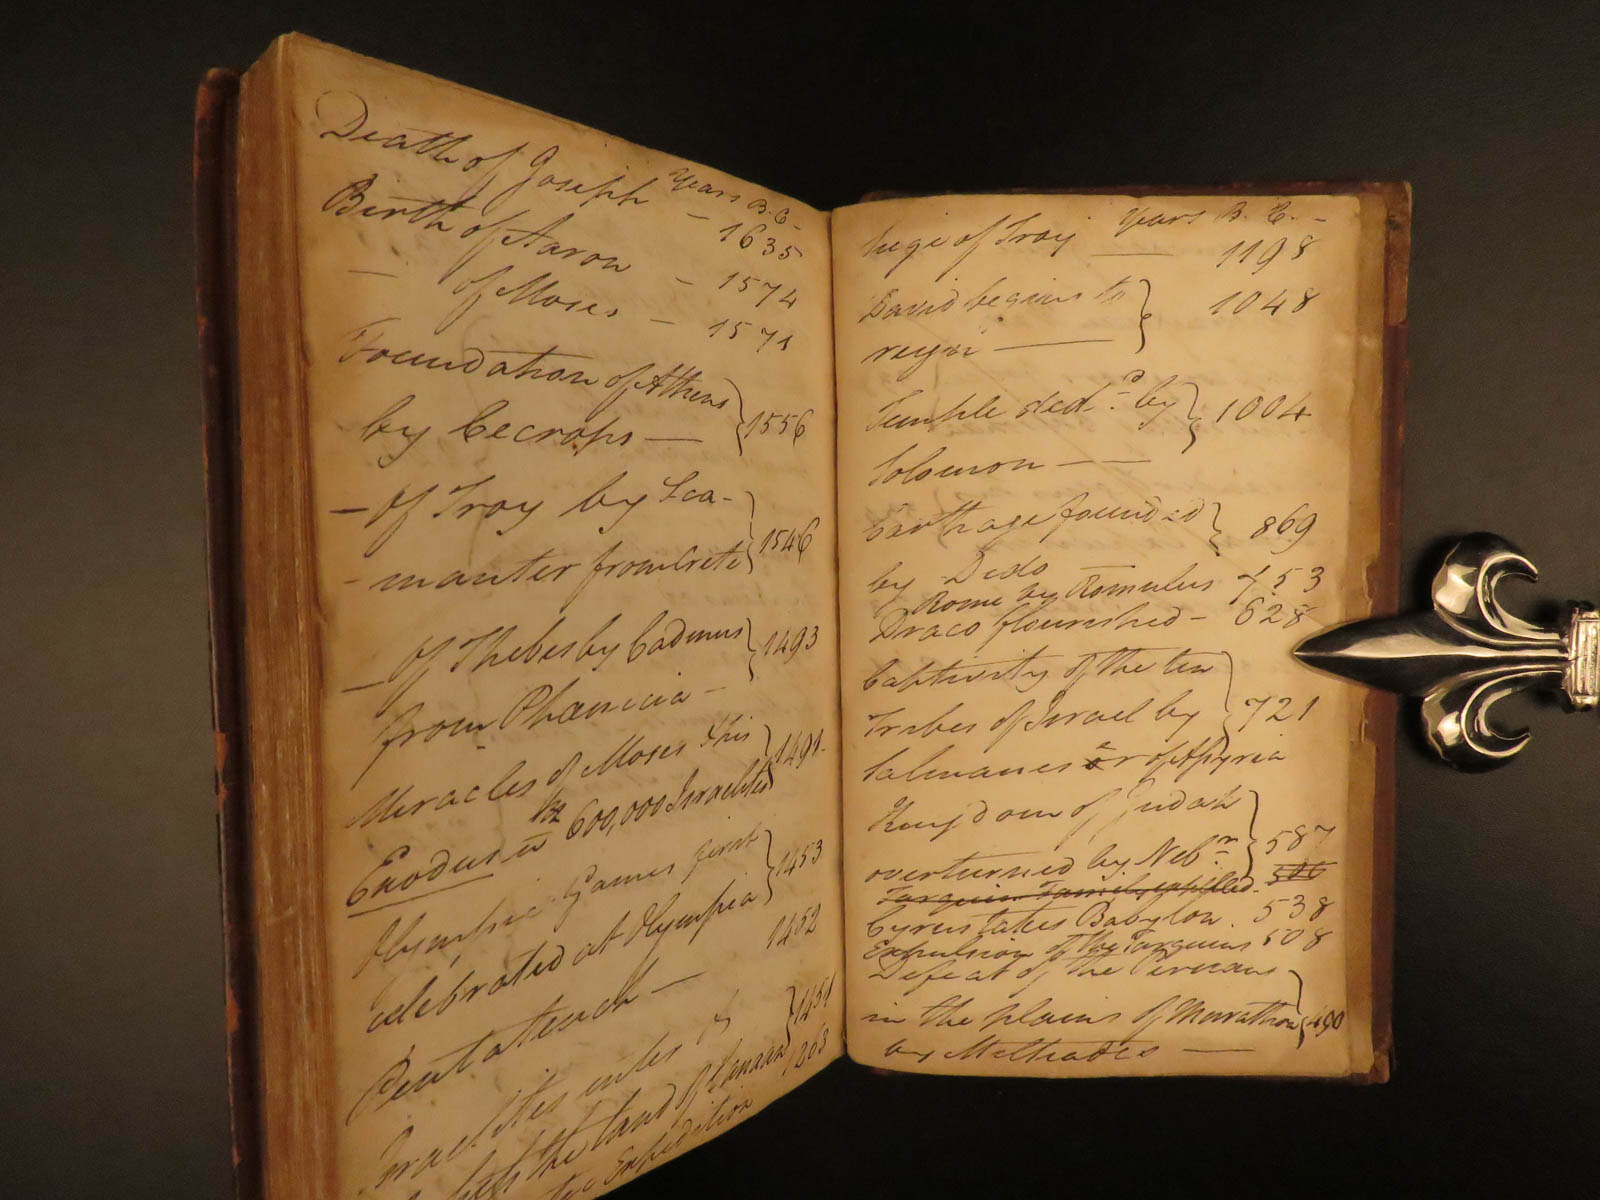 Years B.C.
Death of Joseph - 1635
Birth of Aaron - 1574
— of Moses - 1571
Foundation of Athens
by Cecrops — } 1556
— Of Troy by Sca-
- manter from Crete } 1546
— Of Thebes by Cadmus
from Phœnicia - } 1493
Miracles of Moses This
Exodus 600,000 Israelites } 1491.
Olympic Games first
celebrated at Olympia } 1453
Pentateuch — 1452
Israelites enter
the land of Canaan } 1451
Expedition 1263
Years B. C. -
Siege of Troy — 1198
David begins to
reign — } 1048
Temple ded.d by
Solomon — } 1004
Carthage founded
by Dido } 869
Rome by Romulus 753
Draco flourished - 628
Captivity of the ten
Tribes of Israel by } 721
Salmanesar of Assyria
Kingdom of Judah
overturned by Neb.r } 587
Tarquin Family expelled. 506
Cyrus takes Babylon. 538
Expulsion of the Tarquins 508
Defeat of the Persians
in the plains of Marathon } 490
by Miltiades —